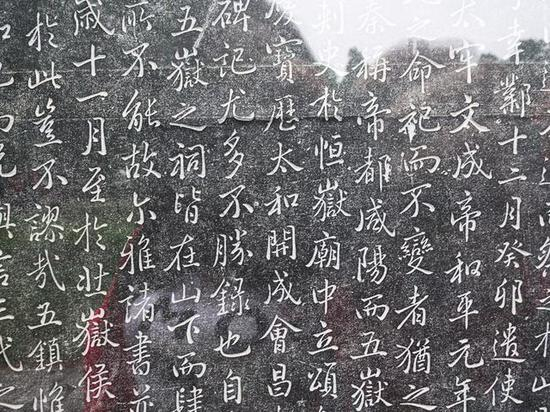 幸鄴十二月癸卯遣使
太牢文成帝和平元年
之命祀而不變者猶之
秦稱帝都咸陽而五嶽
刺史於恒嶽廟中立頌
寶歷太和開成會昌
碑記尤多不勝錄也自
五嶽之祠皆在山下而肆
所不能故爾雅諸書並
歲十一月至於北嶽侯
於此豈不謬哉五鎮惟
言三代之